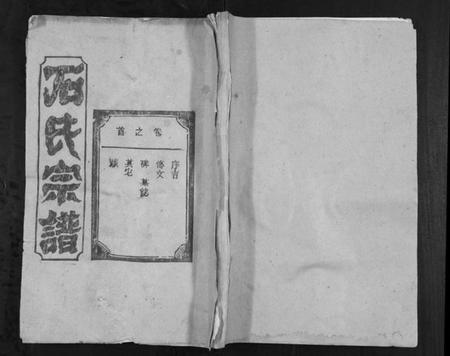 石氏宗譜
卷之首
序言
修文
碑 墓誌
其它